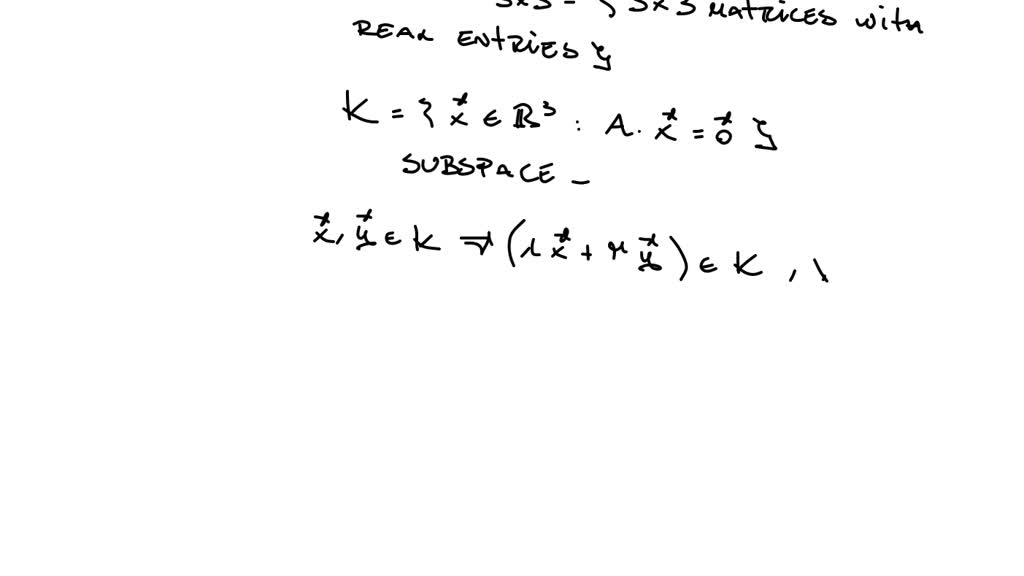 3x3 = { 3x3 MATRICES with
REAL ENTRIES }
K = { x⃗ ∈ ℝ³ : A. x⃗ = 0⃗ }
SUBSPACE –
x⃗, y⃗ ∈ K ⇒ (λ x⃗ + μ y⃗) ∈ K ,